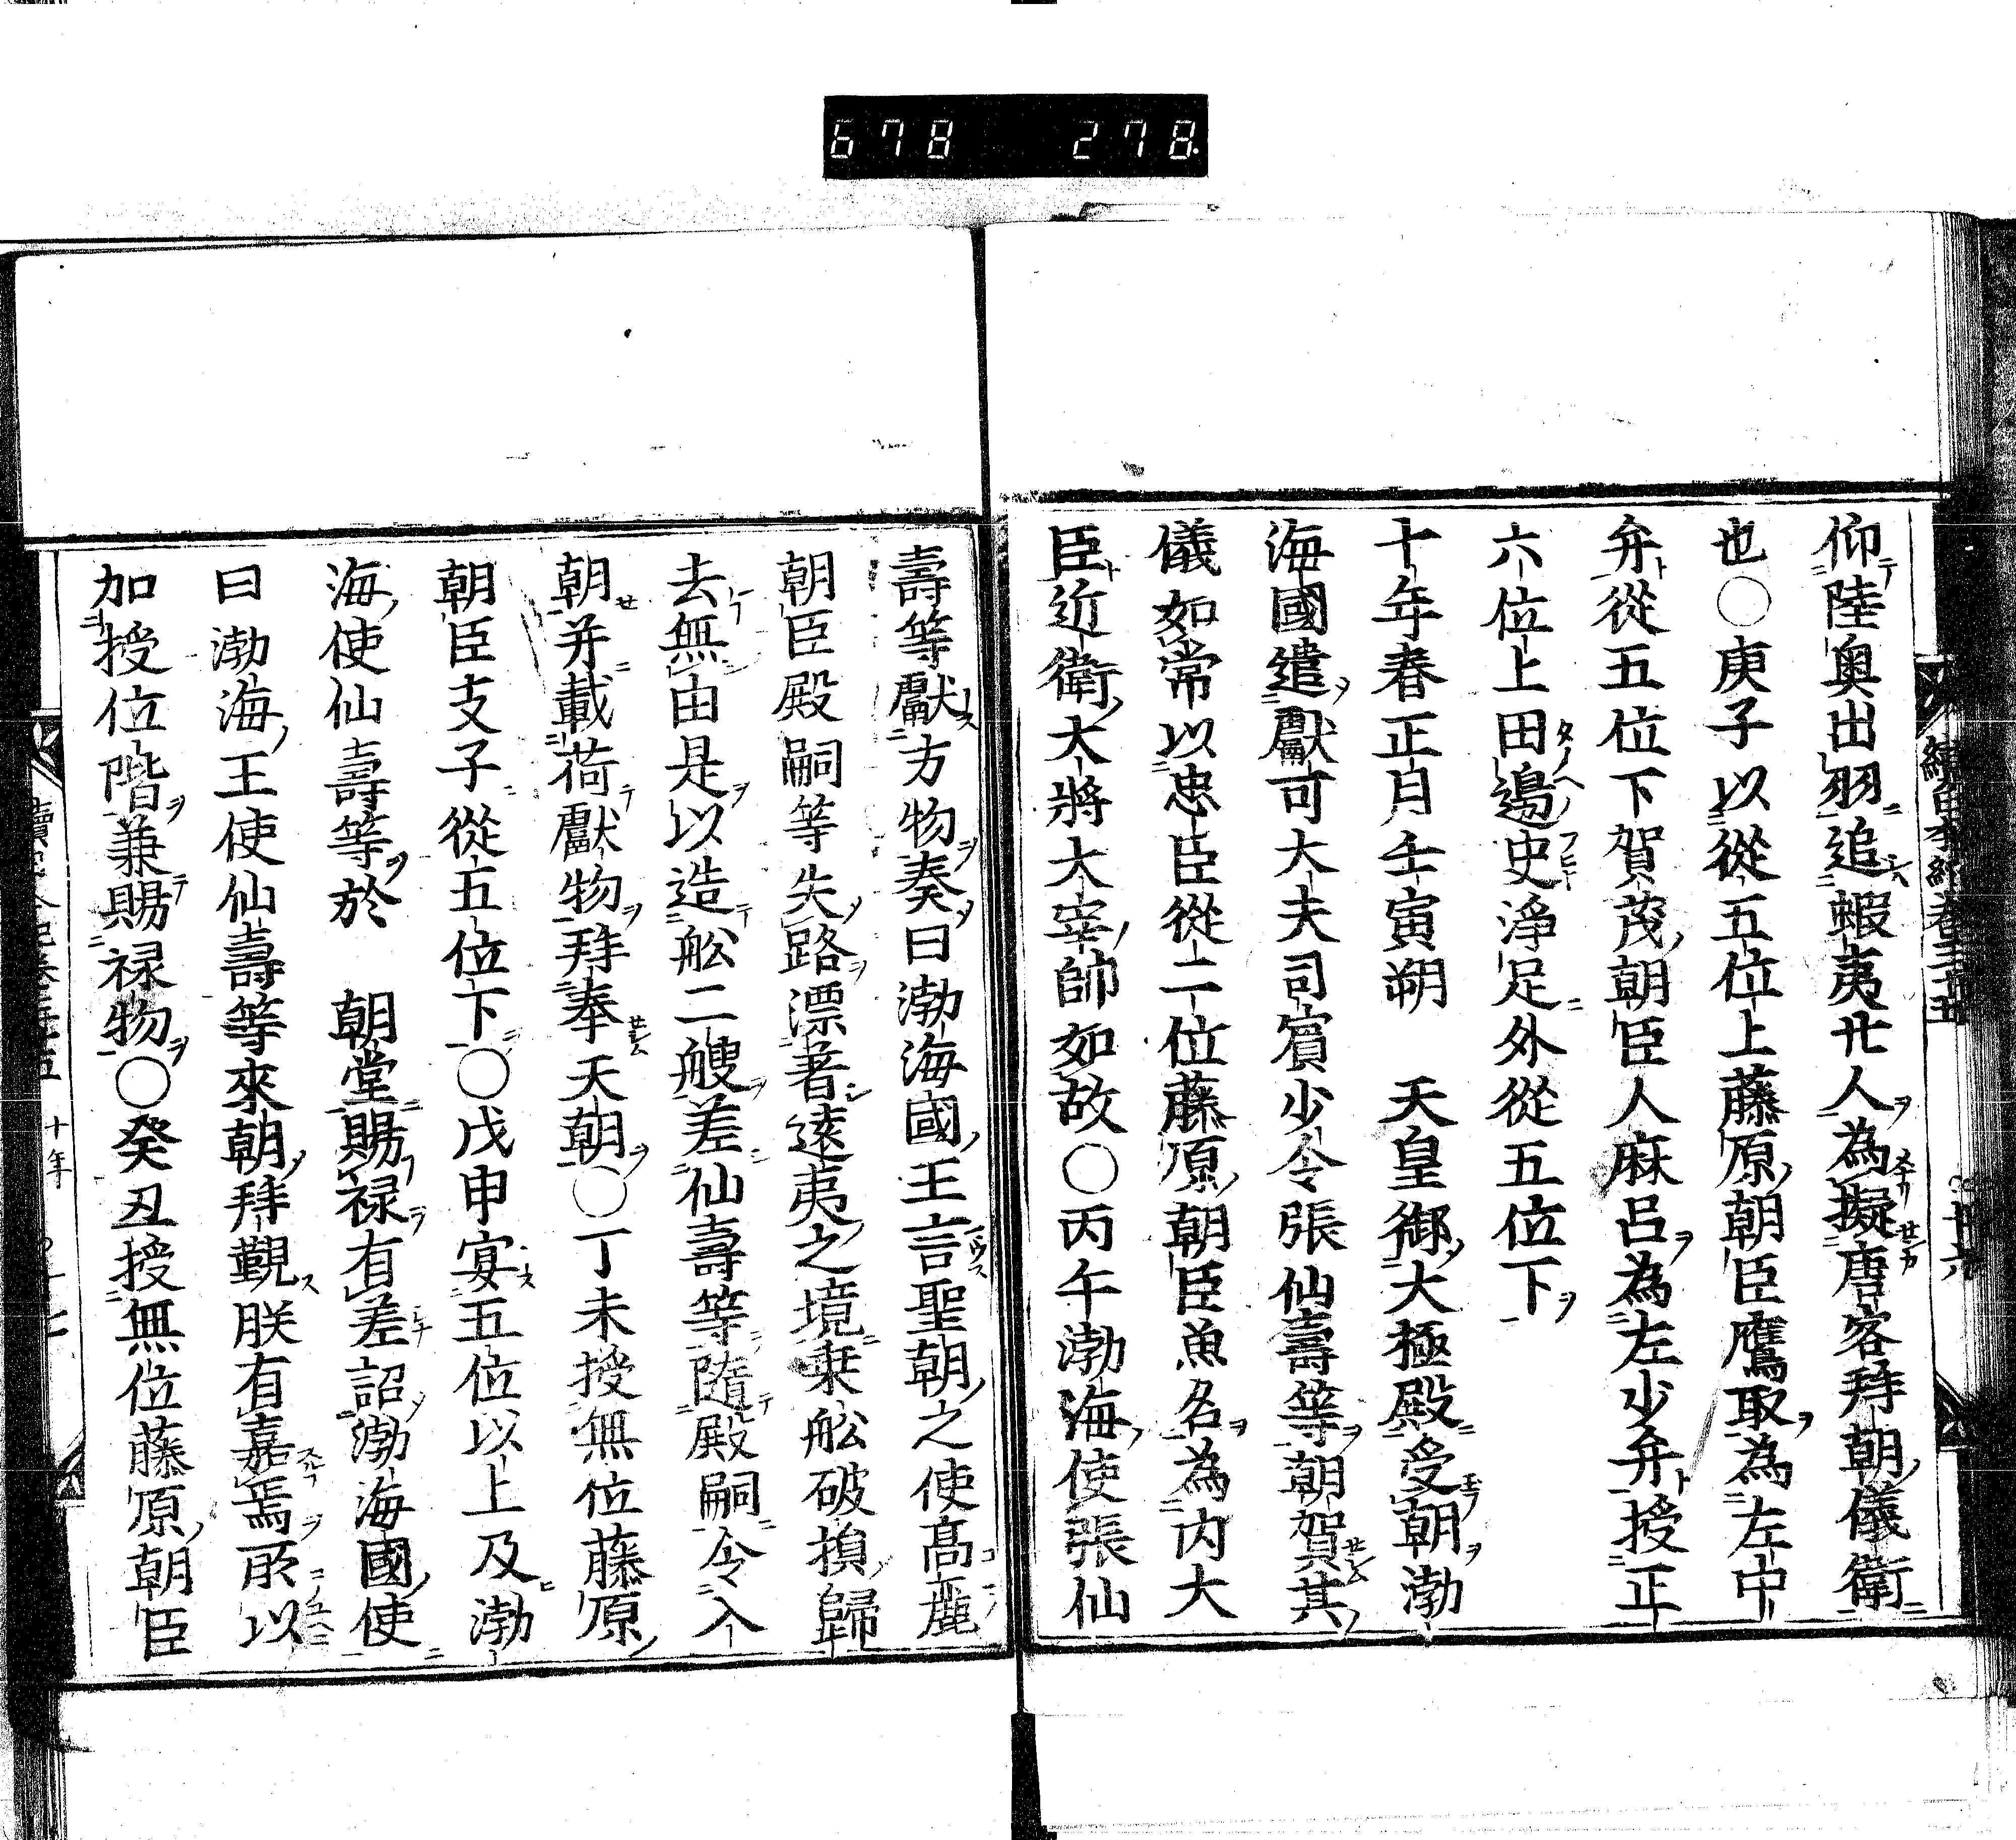 678 278.
仰陸奥出羽追蝦夷廿人為擬唐客拜朝儀衛
也○庚子以從五位上藤原朝臣鷹取為左中
弁從五位下賀茂朝臣人麻呂為左少弁授正
六位上田邊史淨足外從五位下
十年春正月壬寅朔　天皇御大極殿受朝渤
海國遣獻可大夫司賓少令張仙壽等朝賀其
儀如常以忠臣從二位藤原朝臣魚名為内大
臣近衛大將大宰帥如故○丙午渤海使張仙
壽等獻方物奏曰渤海國王言聖朝之使高麗
朝臣殿嗣等失路漂著遠夷之境乗舩破損歸
去無由是以造舩二艘差仙壽等隨殿嗣令入
朝并載荷獻物拜奉天朝○丁未授無位藤原
朝臣支子從五位下○戊申宴五位以上及渤
海使仙壽等於　朝堂賜禄有差詔渤海國使
曰渤海王使仙壽等來朝拜覲朕有嘉焉所以
加授位階兼賜禄物○癸丑授無位藤原朝臣
十年